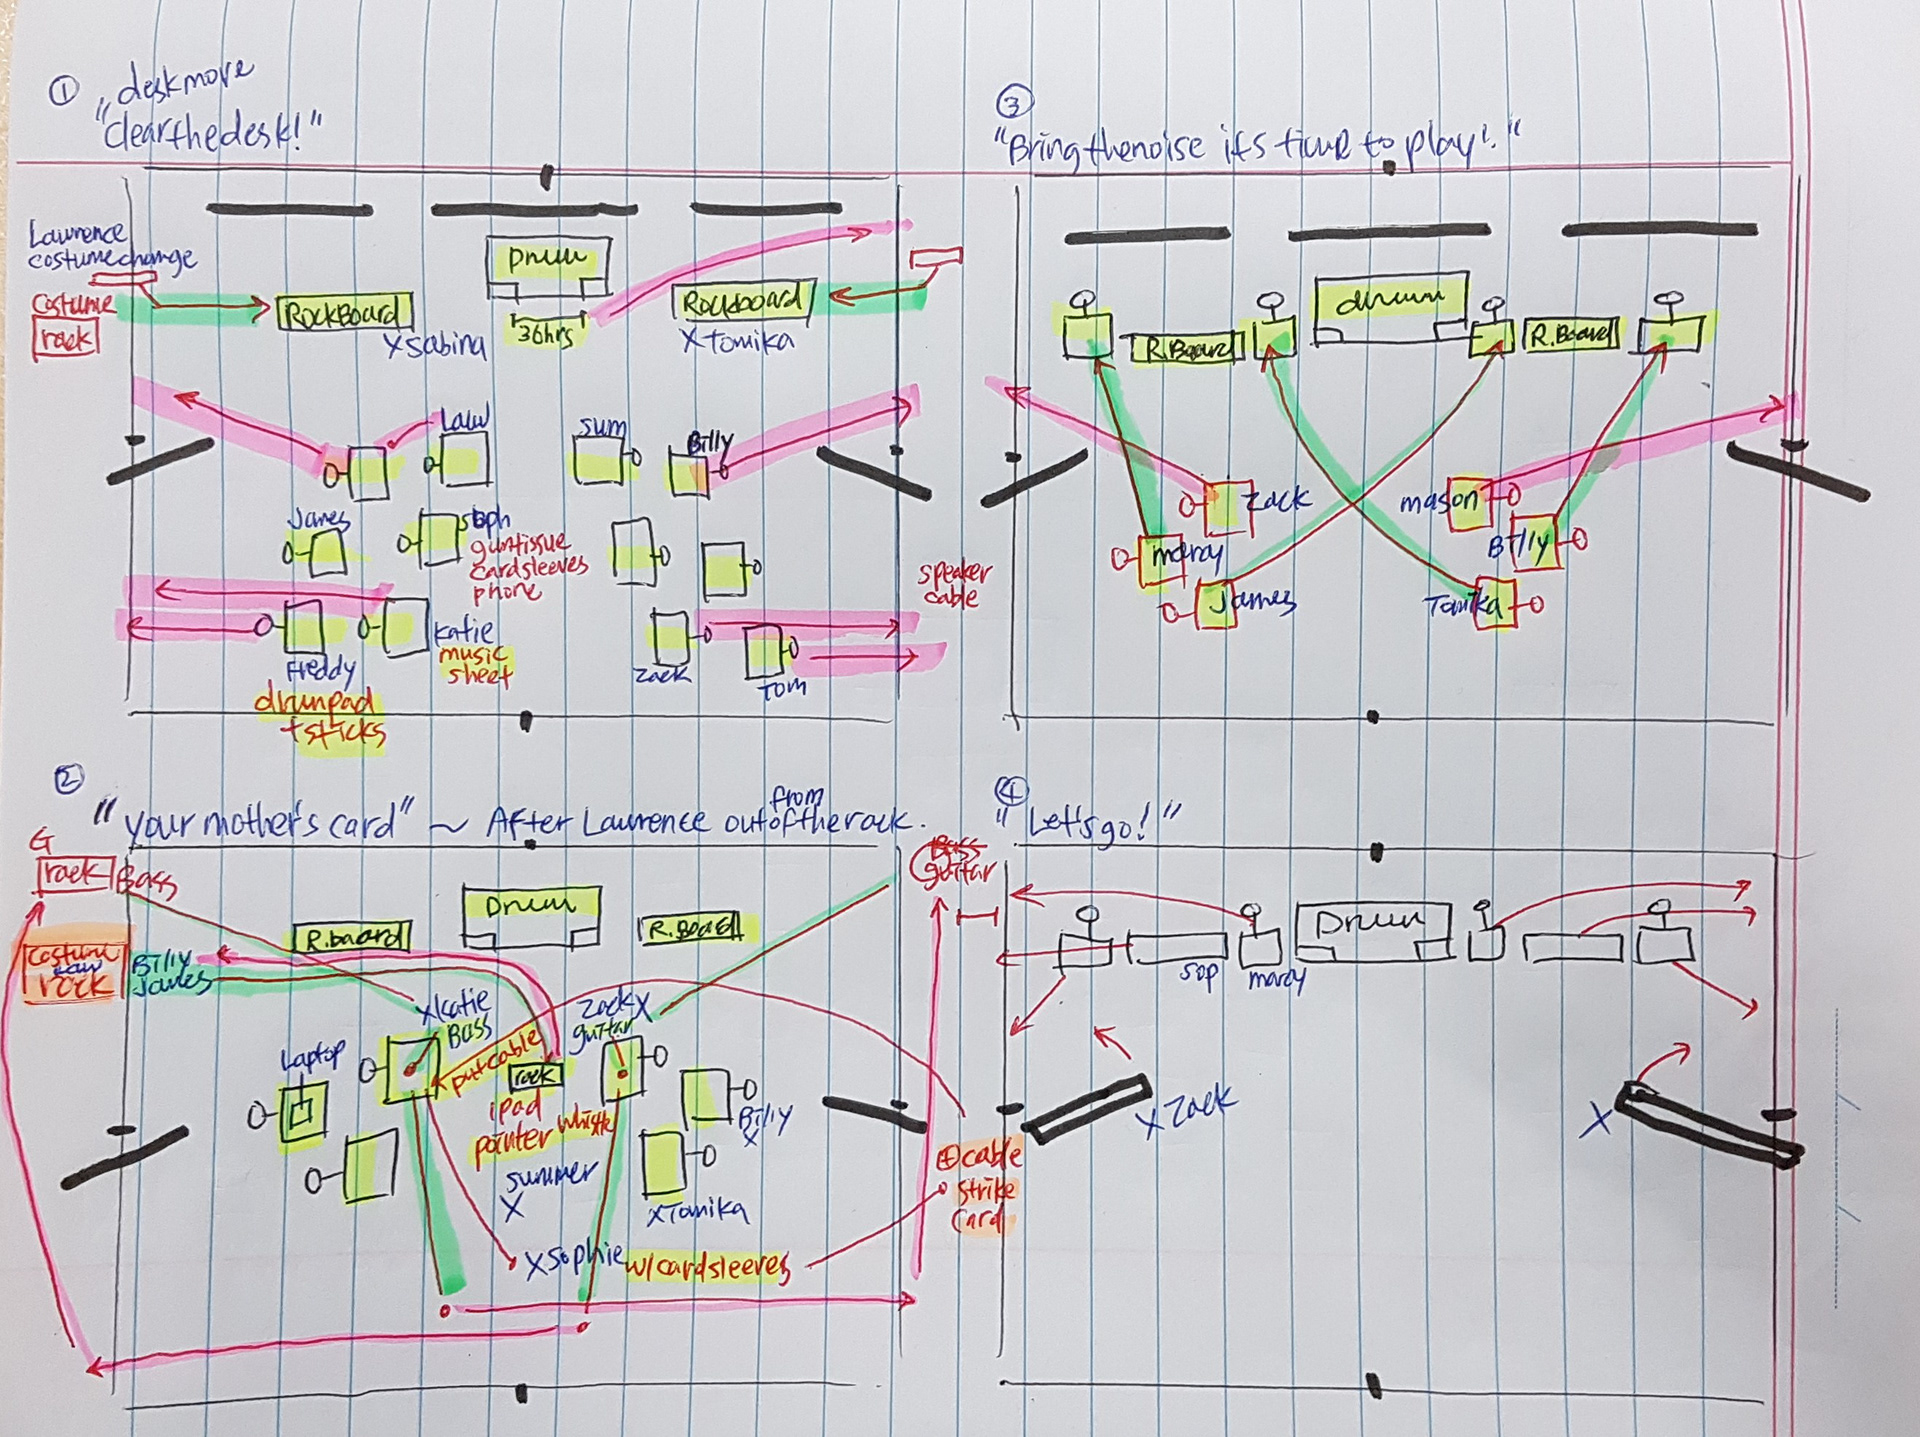 ①
"deskmove
"clearthedesk!"
Lawrence
costumechange
Costume
rack
RockBoard
Drum
36hrs
Rockboard
Xsabina
Xtomika
Law
sum
Billy
James
soph
guntissue
cardsleeves
phone
speaker
cable
Freddy
drumpad
+sticks
katie
music
sheet
zack
Tom
③
"Bringthenoise it's time to play!"
drum
R.Board
R.Board
zack
mason
marcy
Billy
James
Tomika
②
"your mother's card" ~ After Lawrence outoftherack.
from
G
rack
Bass
Bass
guitar
Costume
Law
rack
Billy
James
R.board
Drum
R.Board
Xkatie
Bass
zackX
guitar
Laptop
putcable
rack
ipad
pointer
whistle
summer
X
Billy
X
XTomika
Xsophie w/cardsleeves
+cable
strike
card
④
"Let'sgo!"
sop
marcy
Drum
Xzack
X